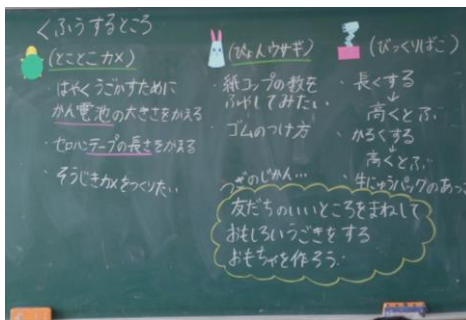 くふうするところ
(とことこカメ)
はやくうごかすために
かん電池の大きさをかえる
・セロハンテープの長さをかえる
・そうじきカメをつくりたい
(ぴょんウサギ)
・紙コップの数を
ふやしてみたい
・ゴムのつけ方
(びっくりばこ)
・長くする
↓
高くとぶ
・かるくする
↓
高くとぶ
・牛にゅうパックのあつ
つぎのじかん…
友だちのいいところをまねして
おもしろいうごきをする
おもちゃを作ろう。